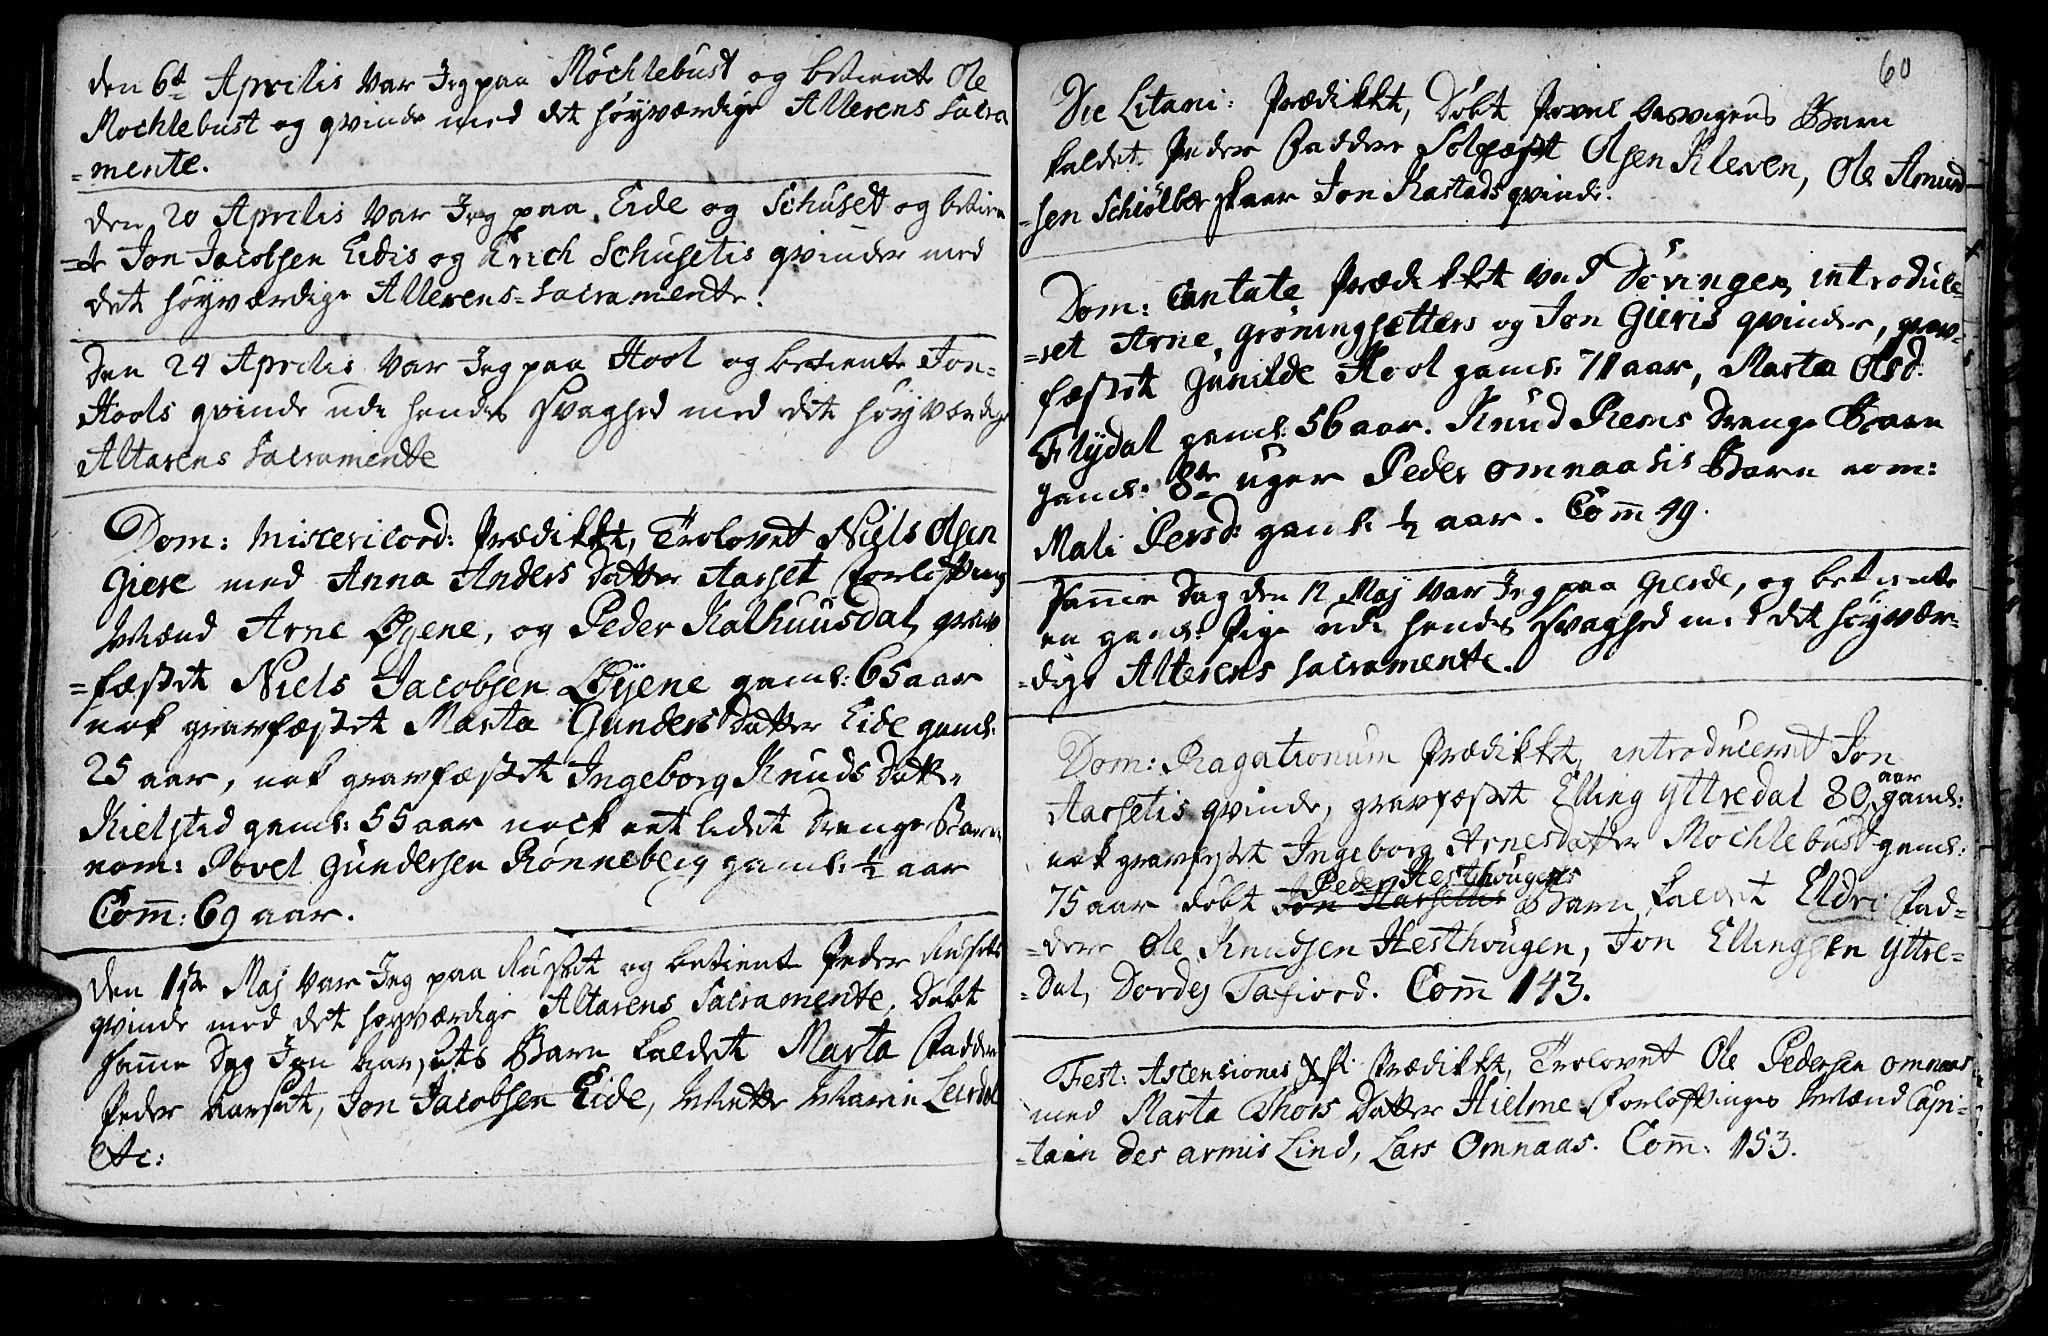 den 6te Aprilis var Jeg paa Mochlebust og betiente Ole
Mochlebust og qvinde med det høyværdige Alterens Sacra
=mente.
den 20 Aprilis var Jeg paa Eide og Schuset og betien
=te Jon Jacobsen Eidis og Erich Schusetis qvinder med
det høyværdige Alterens=Sacramente.
Den 24 Aprilis var Jeg paa Hool og betiente Jon=
Hools qvinde udi hendes svaghed med det høyværdige
Altarens Sacramente
Dom: Misericord: Prædikket, Trolovet Niels Olsen
Giere med Anna Anders Datter Aarset Forløftnings
Mænd Arne Øyene, og Peder Kalhuusdal, grav
=fæstet Niels Jacobsen Øyene gaml: 65 aar
nok gravfæstet Marta Gunders Datter Eide gaml:
25 aar, nok gravfæstet Ingeborg Knuds Datt:
Kielsted gaml: 55 aar nock eet lidet Drenge Barn
nom: Povel Gundersen Rønneberg gaml: ½ aar
Com̄: 69 aar.
den 1ste Maj var Jeg paa Ruset og betient Peder Rusets
qvinde med det høyværdige Altarens Sacramente. Døbt
samme Dag Jon Aarsets Barn kaldet Marta Faddere
Peder Aarset, Jon Jacobsen Eide, Mette Marin Leirdal
etc:
60
Die Litani: Prædikket, Døbt Povel Aasvigens Barn
kaldet Peder Faddere Solgæst Olsen Kleven, Ole Amund
=sen Schiølberskaar Jon Rastads qvinde.
Dom: Cantate Prædikket ved Døvingen, introduce=
=ret Arne Grøningsetters og Jon Gieris qvinder, grav=
fæstet Gunilde Hool gaml: 71 aar, Marta Olsd.
Flydal gaml: 56 aar. Knud Rems Drenge Barn
gaml: 8te uger Peder Omnaasis Barn nom:
Mali Persd: gaml: ½ aar. Com̄ 49.
Samme Dag den 12 Maj var Jeg paa Gierde, og betiente
en gaml: Pige udi hendes svaghed med det høyvær=
=dige Alterens Sacramente.
Dom: Ragationum Prædikket, introduceret Jon
Aarsetis qvinde, gravfæstet Elling Yttredal 80 aar gaml:
nok gravfæstet Ingeborg Arnesdatter Mochlebust gaml:
75 aar døbt Jon Aarsettis Peder Hesthougens Barn, kaldet Eldri Fad=
=dere Ole Knudsen Hesthougen, Jon Ellingsen Yttre=
=dal, Dordej Tafiord. Com̄ 143.
Fest: Ascensionis Xsti Prædikket, Trolovet Ole Pedersen Omnaas
med Marta Thors Datter Hielme Forløftnings Mænd Capi=
=tain des armis Lind, Lars Omnaas. Com̄: 153.